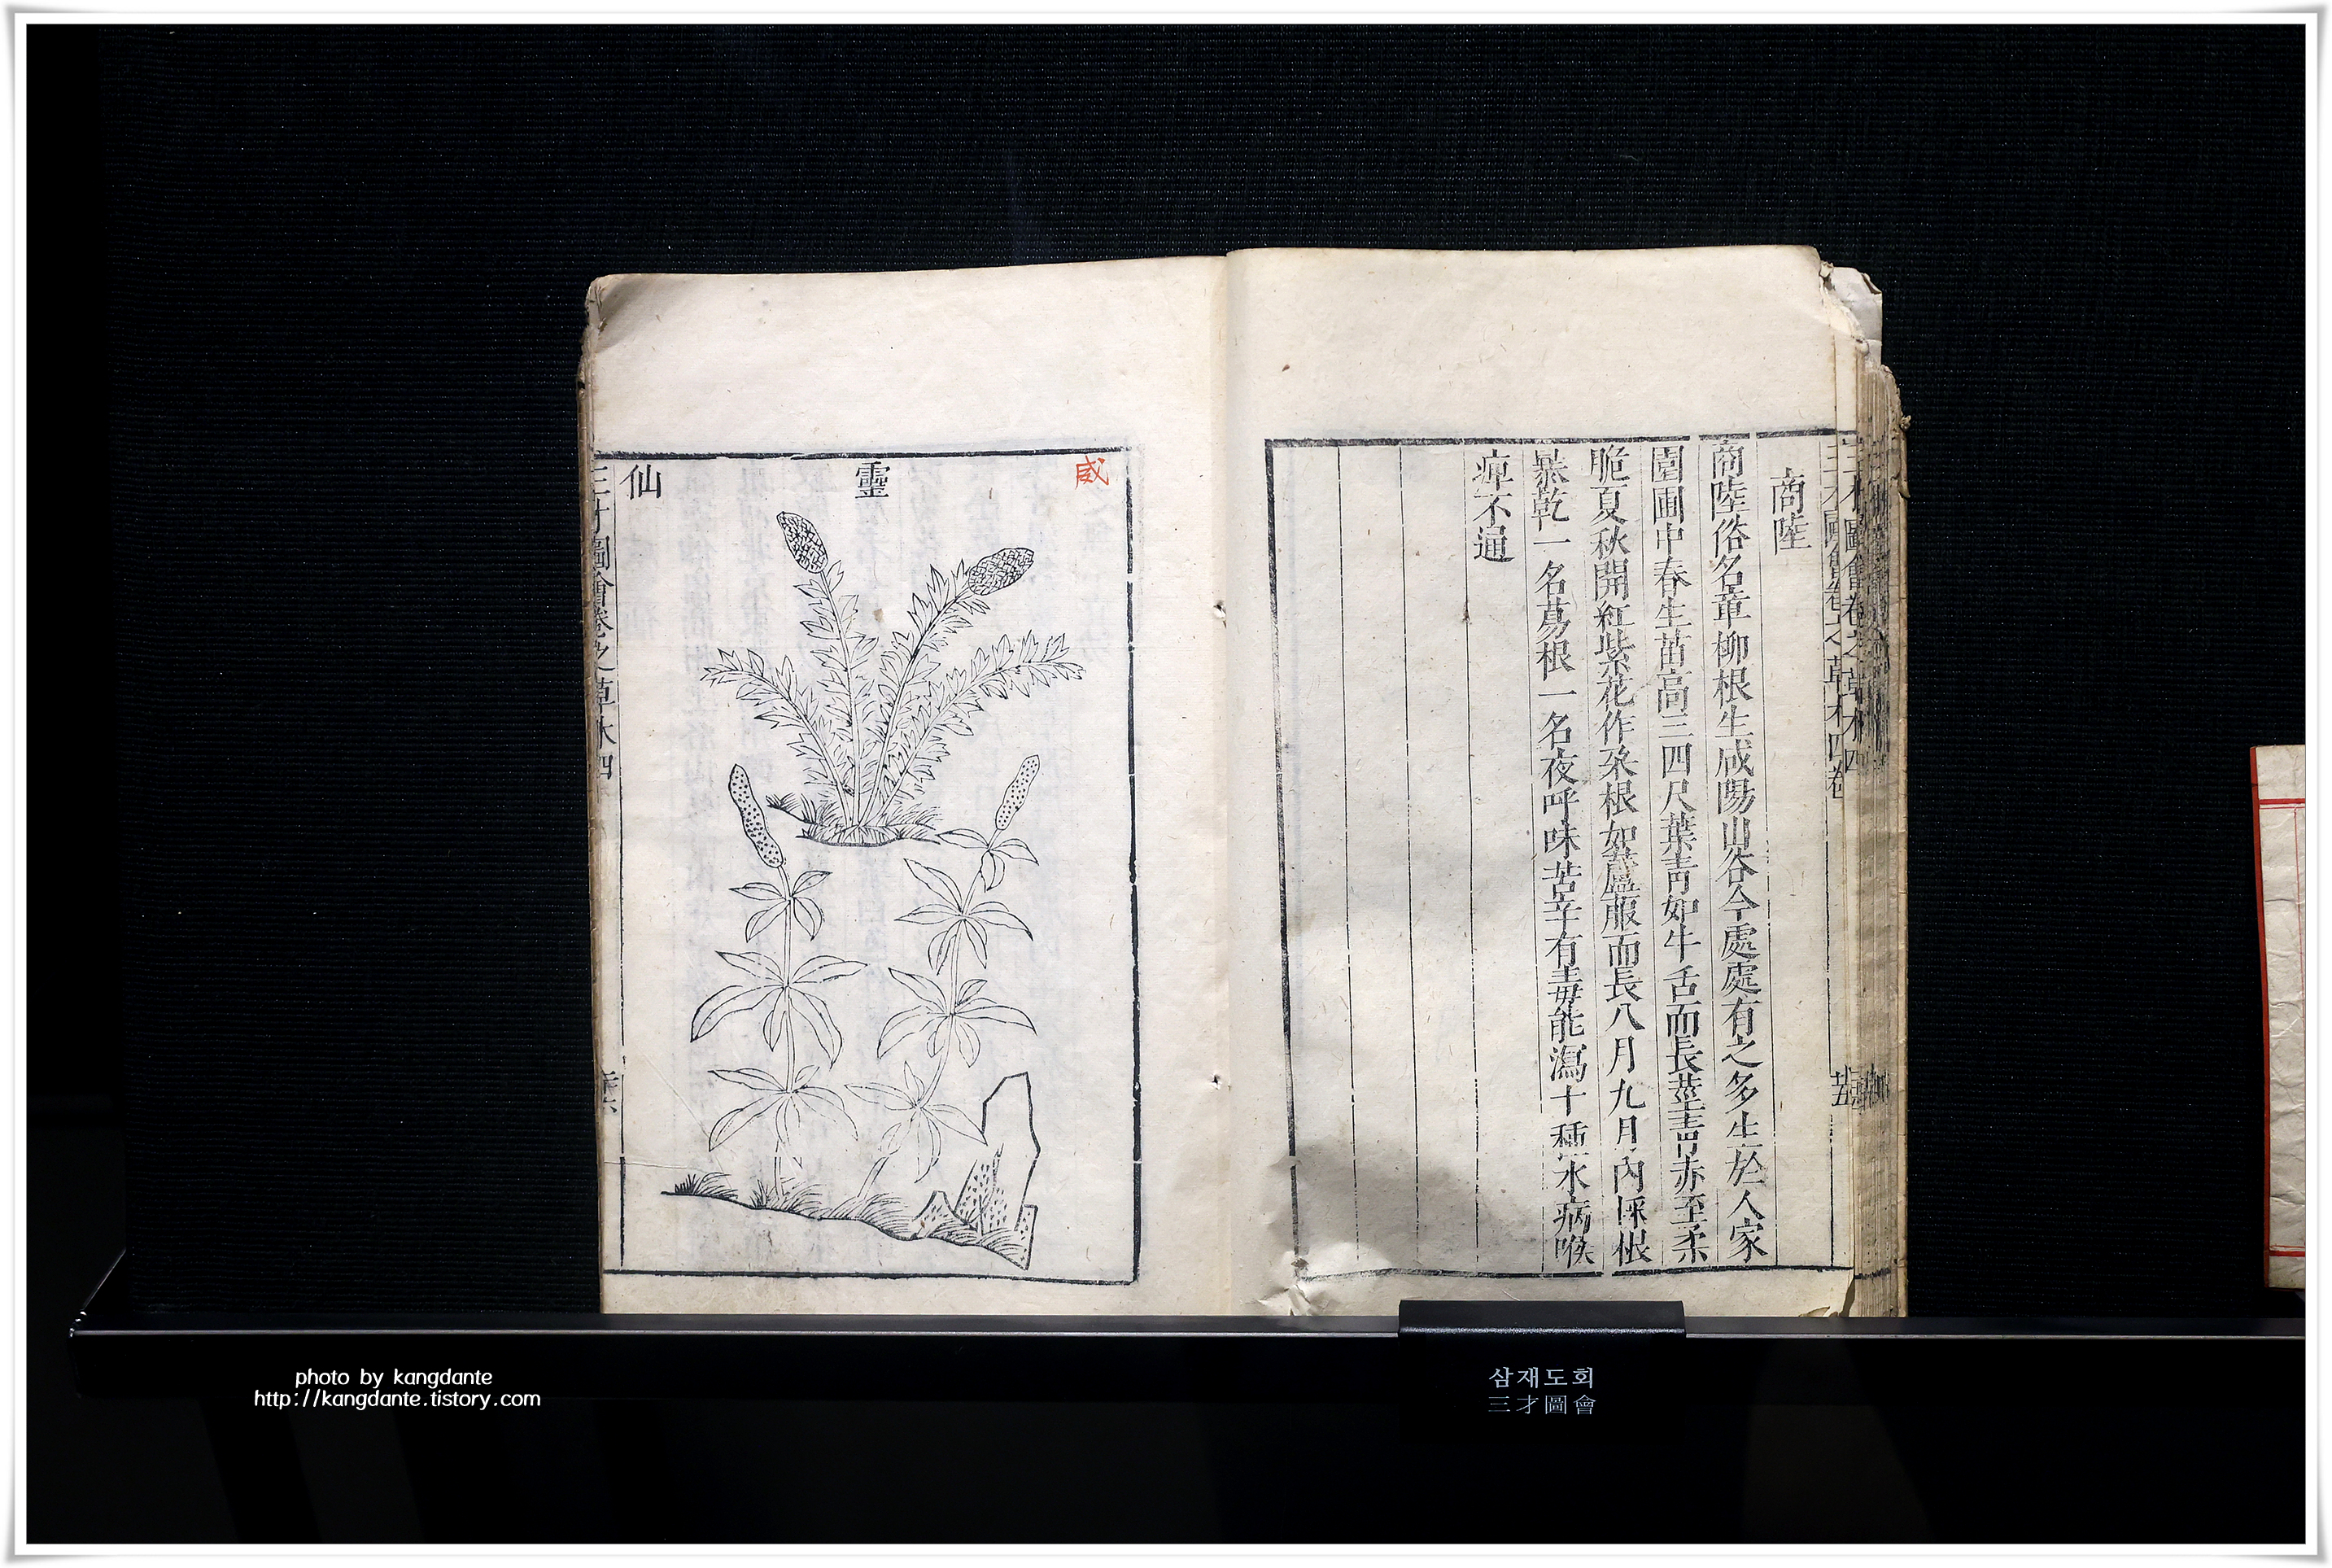 商陸
商陸俗名章柳根生咸陽山谷今處處有之多生於人家
園圃中春生苗高三四尺葉青如牛舌而長莖青赤至柔
脆夏秋開紅紫花作朶根如蘆菔而長八月九月內採根
暴乾一名葛根一名夜呼味苦辛有毒能瀉十種水病喉
痺不通
威
靈
仙
三才圖會卷之草木四
삼재도회
三才圖會
photo by kangdante
http://kangdante.tistory.com